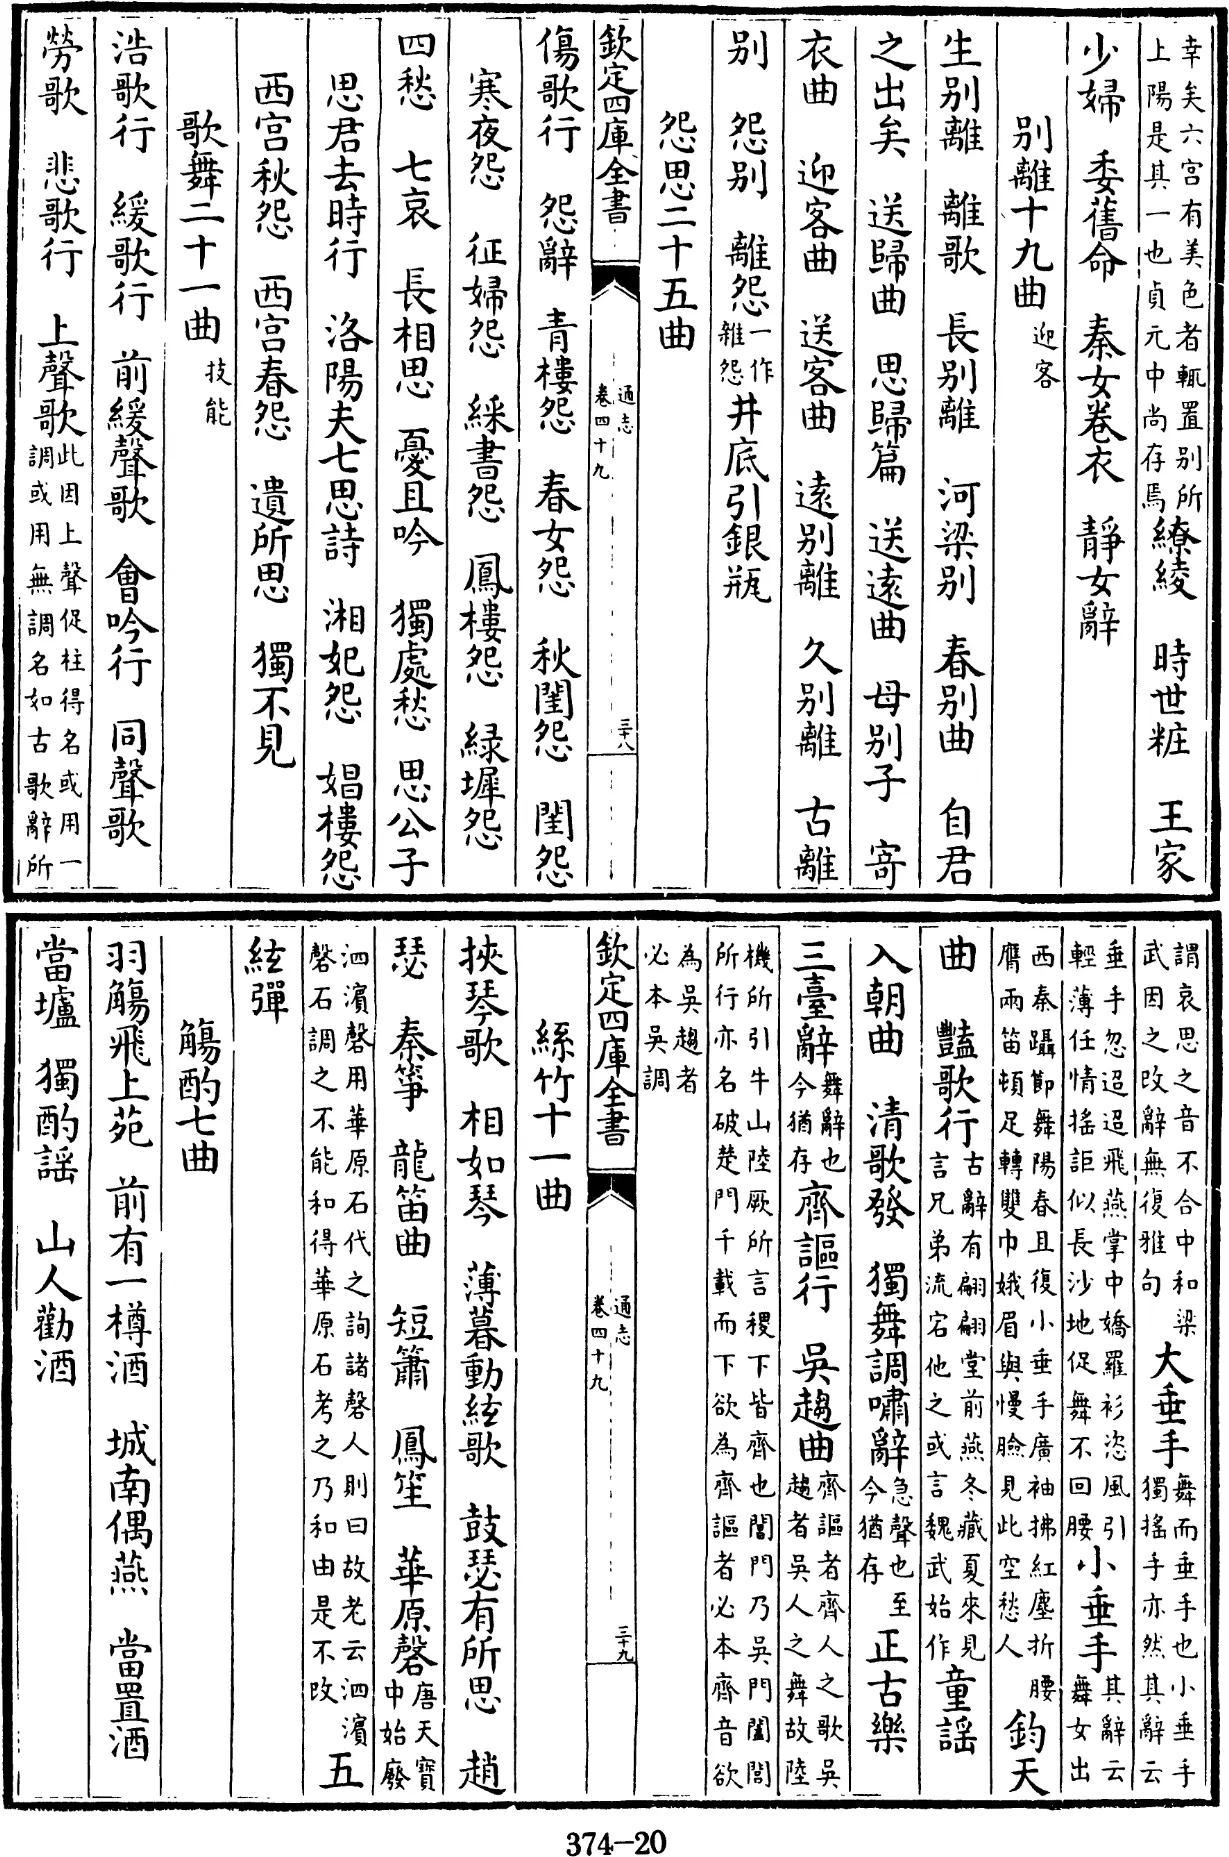 幸矣六宮有美色者輒置别所
上陽是其一也貞元中尚存焉繚綾　時世粧　王家
少婦　委舊命　秦女卷衣　靜女辭
别離十九曲迎客
生别離　離歌　長别離　河梁别　春别曲　自君
之出矣　送歸曲　思歸篇　送遠曲　母别子　寄
衣曲　迎客曲　送客曲　遠别離　久别離　古離
别　怨别　離怨一作雜怨井底引銀瓶
怨思二十五曲
欽定四庫全書　通志卷四十九　三十八
傷歌行　怨辭　青樓怨　春女怨　秋閨怨　閨怨
寒夜怨　征婦怨　綵書怨　鳳樓怨　緑墀怨
四愁　七哀　長相思　憂且吟　獨處愁　思公子
思君去時行　洛陽夫七思詩　湘妃怨　娼樓怨
西宮秋怨　西宮春怨　遺所思　獨不見
歌舞二十一曲技能
浩歌行　緩歌行　前緩聲歌　會吟行　同聲歌
勞歌　悲歌行　上聲歌此因上聲促柱得名或用一
調或用無調名如古歌辭所
謂哀思之音不合中和梁
武因之改辭無復雅句　大垂手舞而垂手也小垂手
獨搖手亦然其辭云
垂手忽迢迢飛燕掌中嬌羅衫恣風引
輕薄任情搖詎似長沙地促舞不回腰小垂手其辭云
舞女出
西秦躡節舞陽春且復小垂手廣袖拂紅塵折腰
膺兩笛頓足轉雙巾娥眉與慢臉見此空愁人　鈞天
曲　豔歌行古辭有翩翩堂前燕冬藏夏來見
言兄弟流宕他之或言魏武始作童謡
入朝曲　清歌發　獨舞調嘯辭急聲也至
今猶存　正古樂
三臺辭舞辭也
今猶存齊謳行　吳趨曲齊謳者齊人之歌吳
趨者吳人之舞故陸
機所引牛山陸厥所言稷下皆齊也閶門乃吳門闔閭
所行亦名破楚門千載而下欲為齊謳者必本齊音欲
為吳趨者
必本吳調
欽定四庫全書　通志卷四十九　三十九
絲竹十一曲
挾琴歌　相如琴　薄暮動絃歌　鼓瑟有所思　趙
瑟　秦箏　龍笛曲　短簫　鳳笙　華原磬唐天寶
中始廢
泗濵磬用華原石代之詢諸磬人則曰故老云泗濵
磬石調之不能和得華原石考之乃和由是不改　五
絃彈
觴酌七曲
羽觴飛上苑　前有一樽酒　城南偶燕　當置酒
當壚　獨酌謡　山人勸酒
374-20